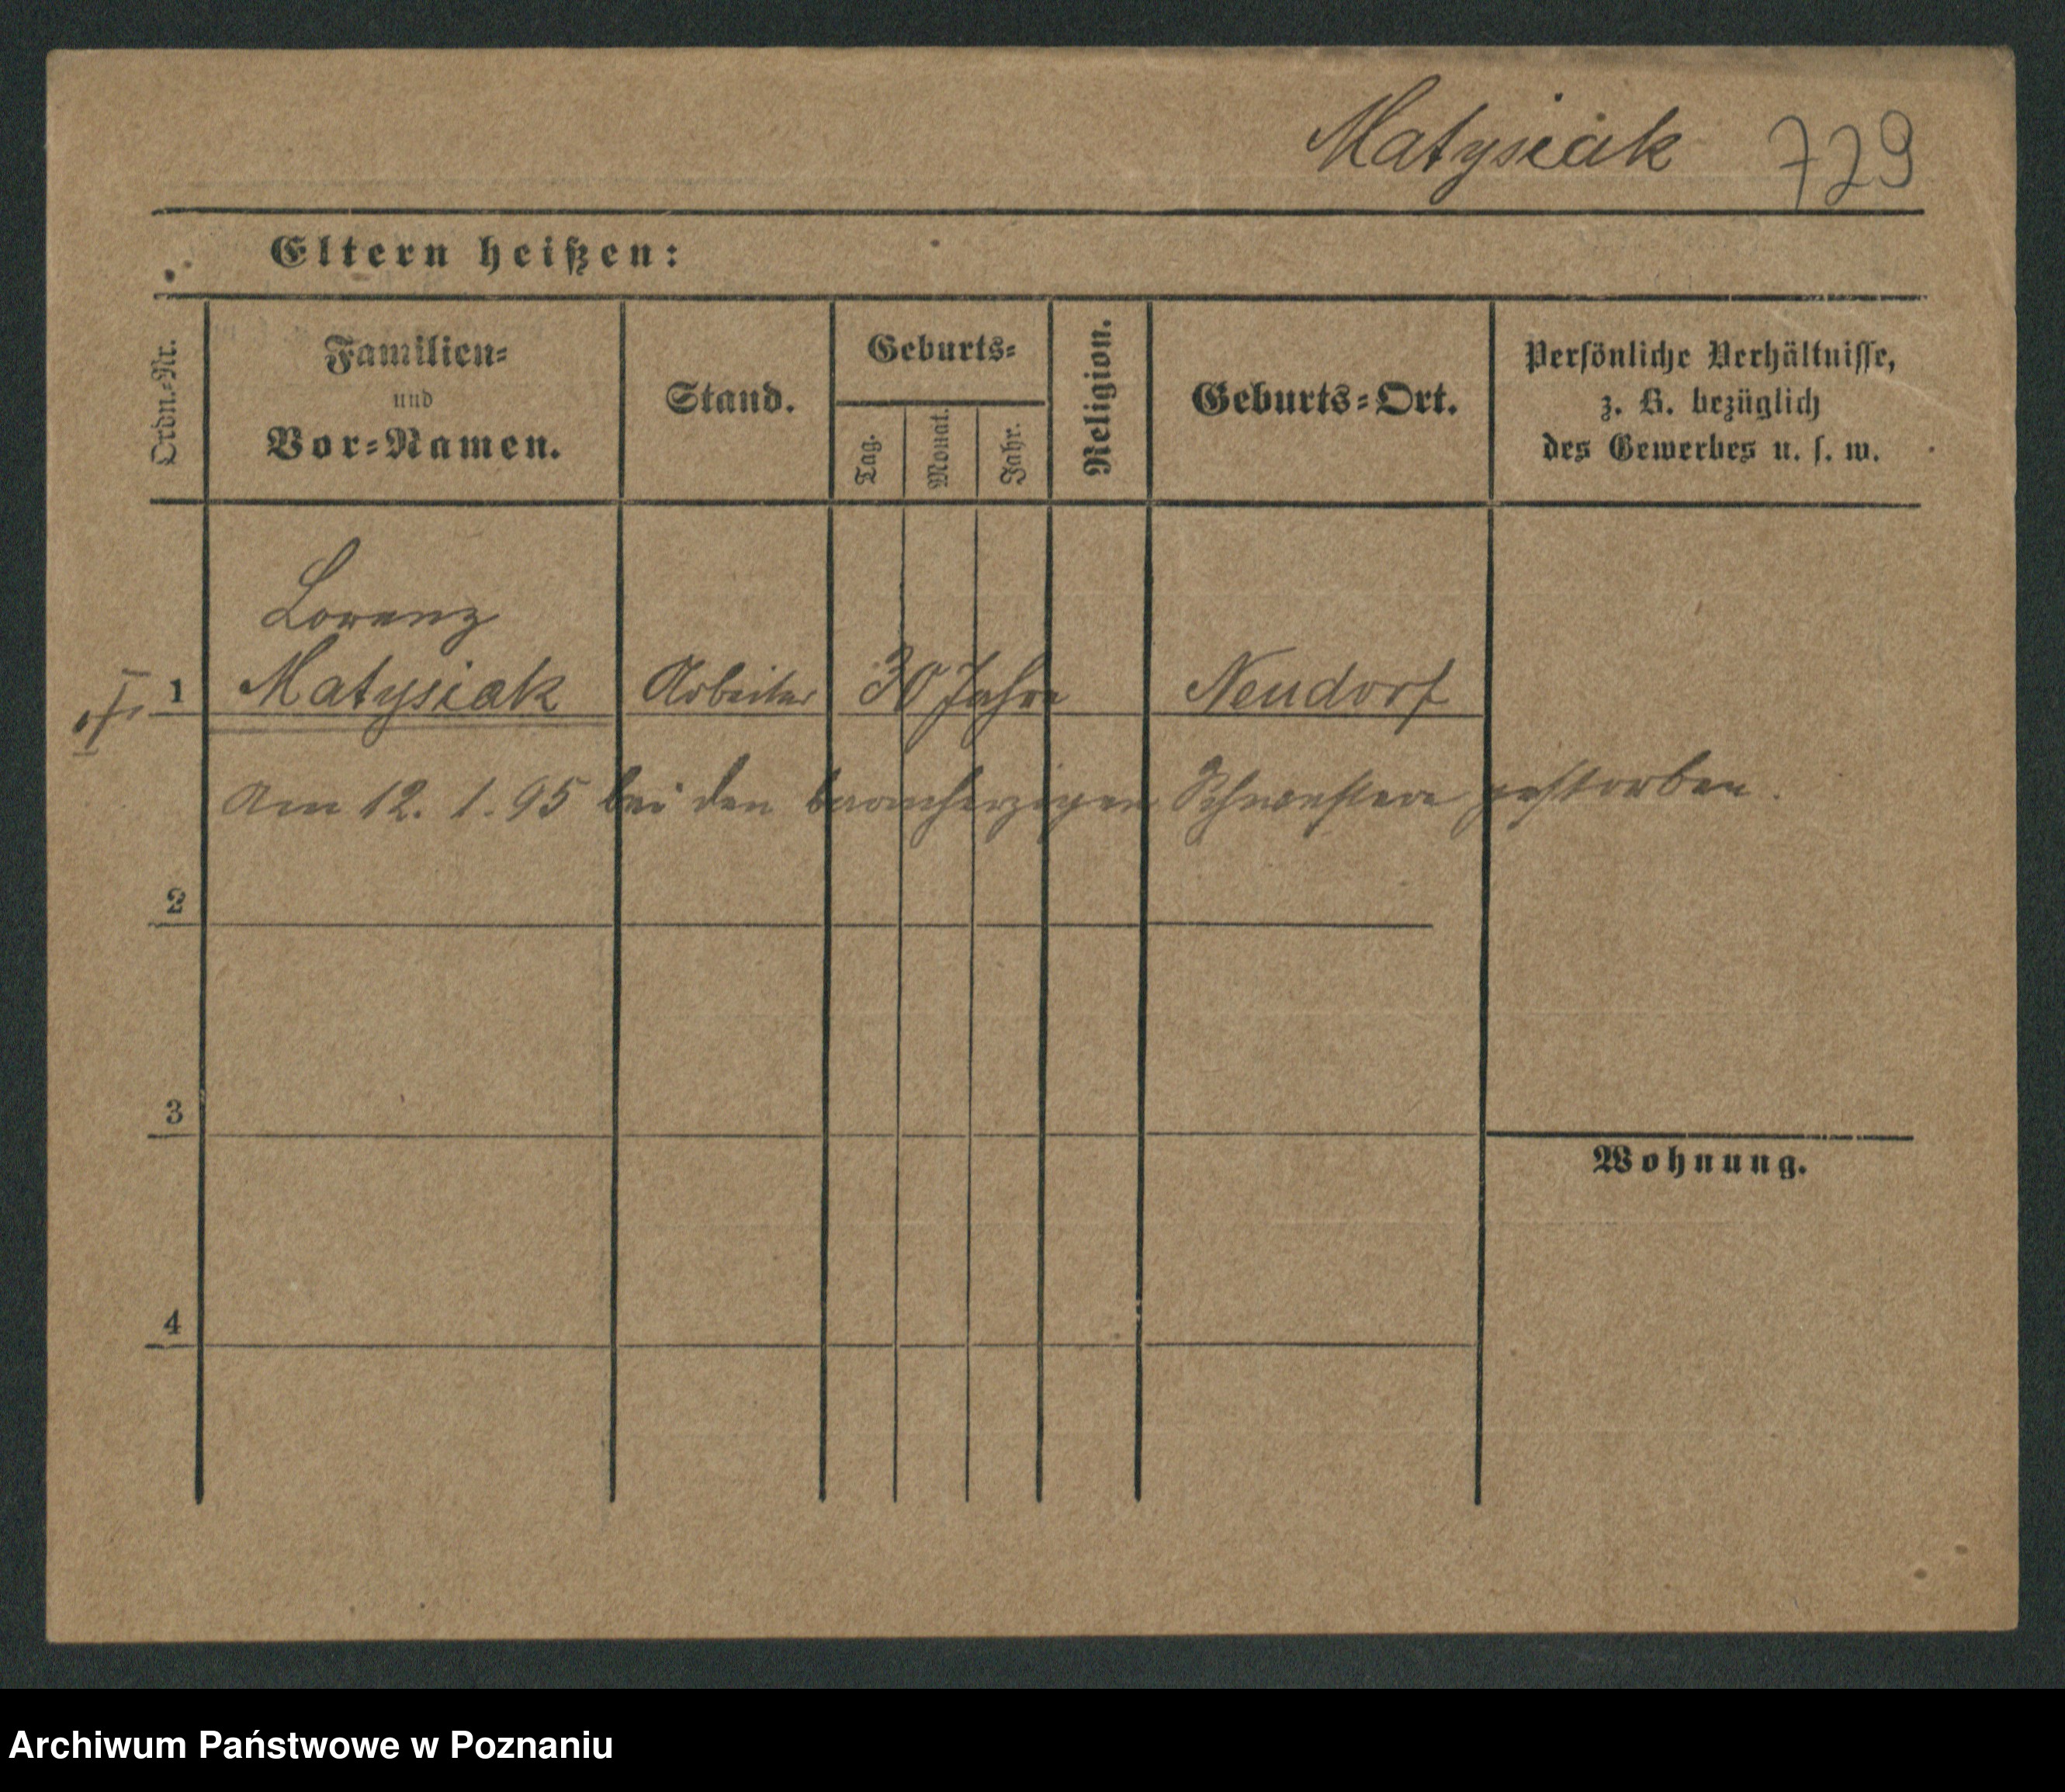 Matysiak 729
Eltern heißen:
Ordn.-Nr.
Familien-
und
Vor-Namen.
Stand.
Geburts-
Tag.
Monat.
Jahr.
Religion.
Geburts-Ort.
Persönliche Verhältnisse,
z. B. bezüglich
des Gewerbes u. s. w.
Lorenz
1 Matysiak Arbeiter 30 Jahre Neudorf
Am 12. 1. 95 bei den barmherzigen Schwestern gestorben.
2
3
Wohnung.
4
Archiwum Państwowe w Poznaniu